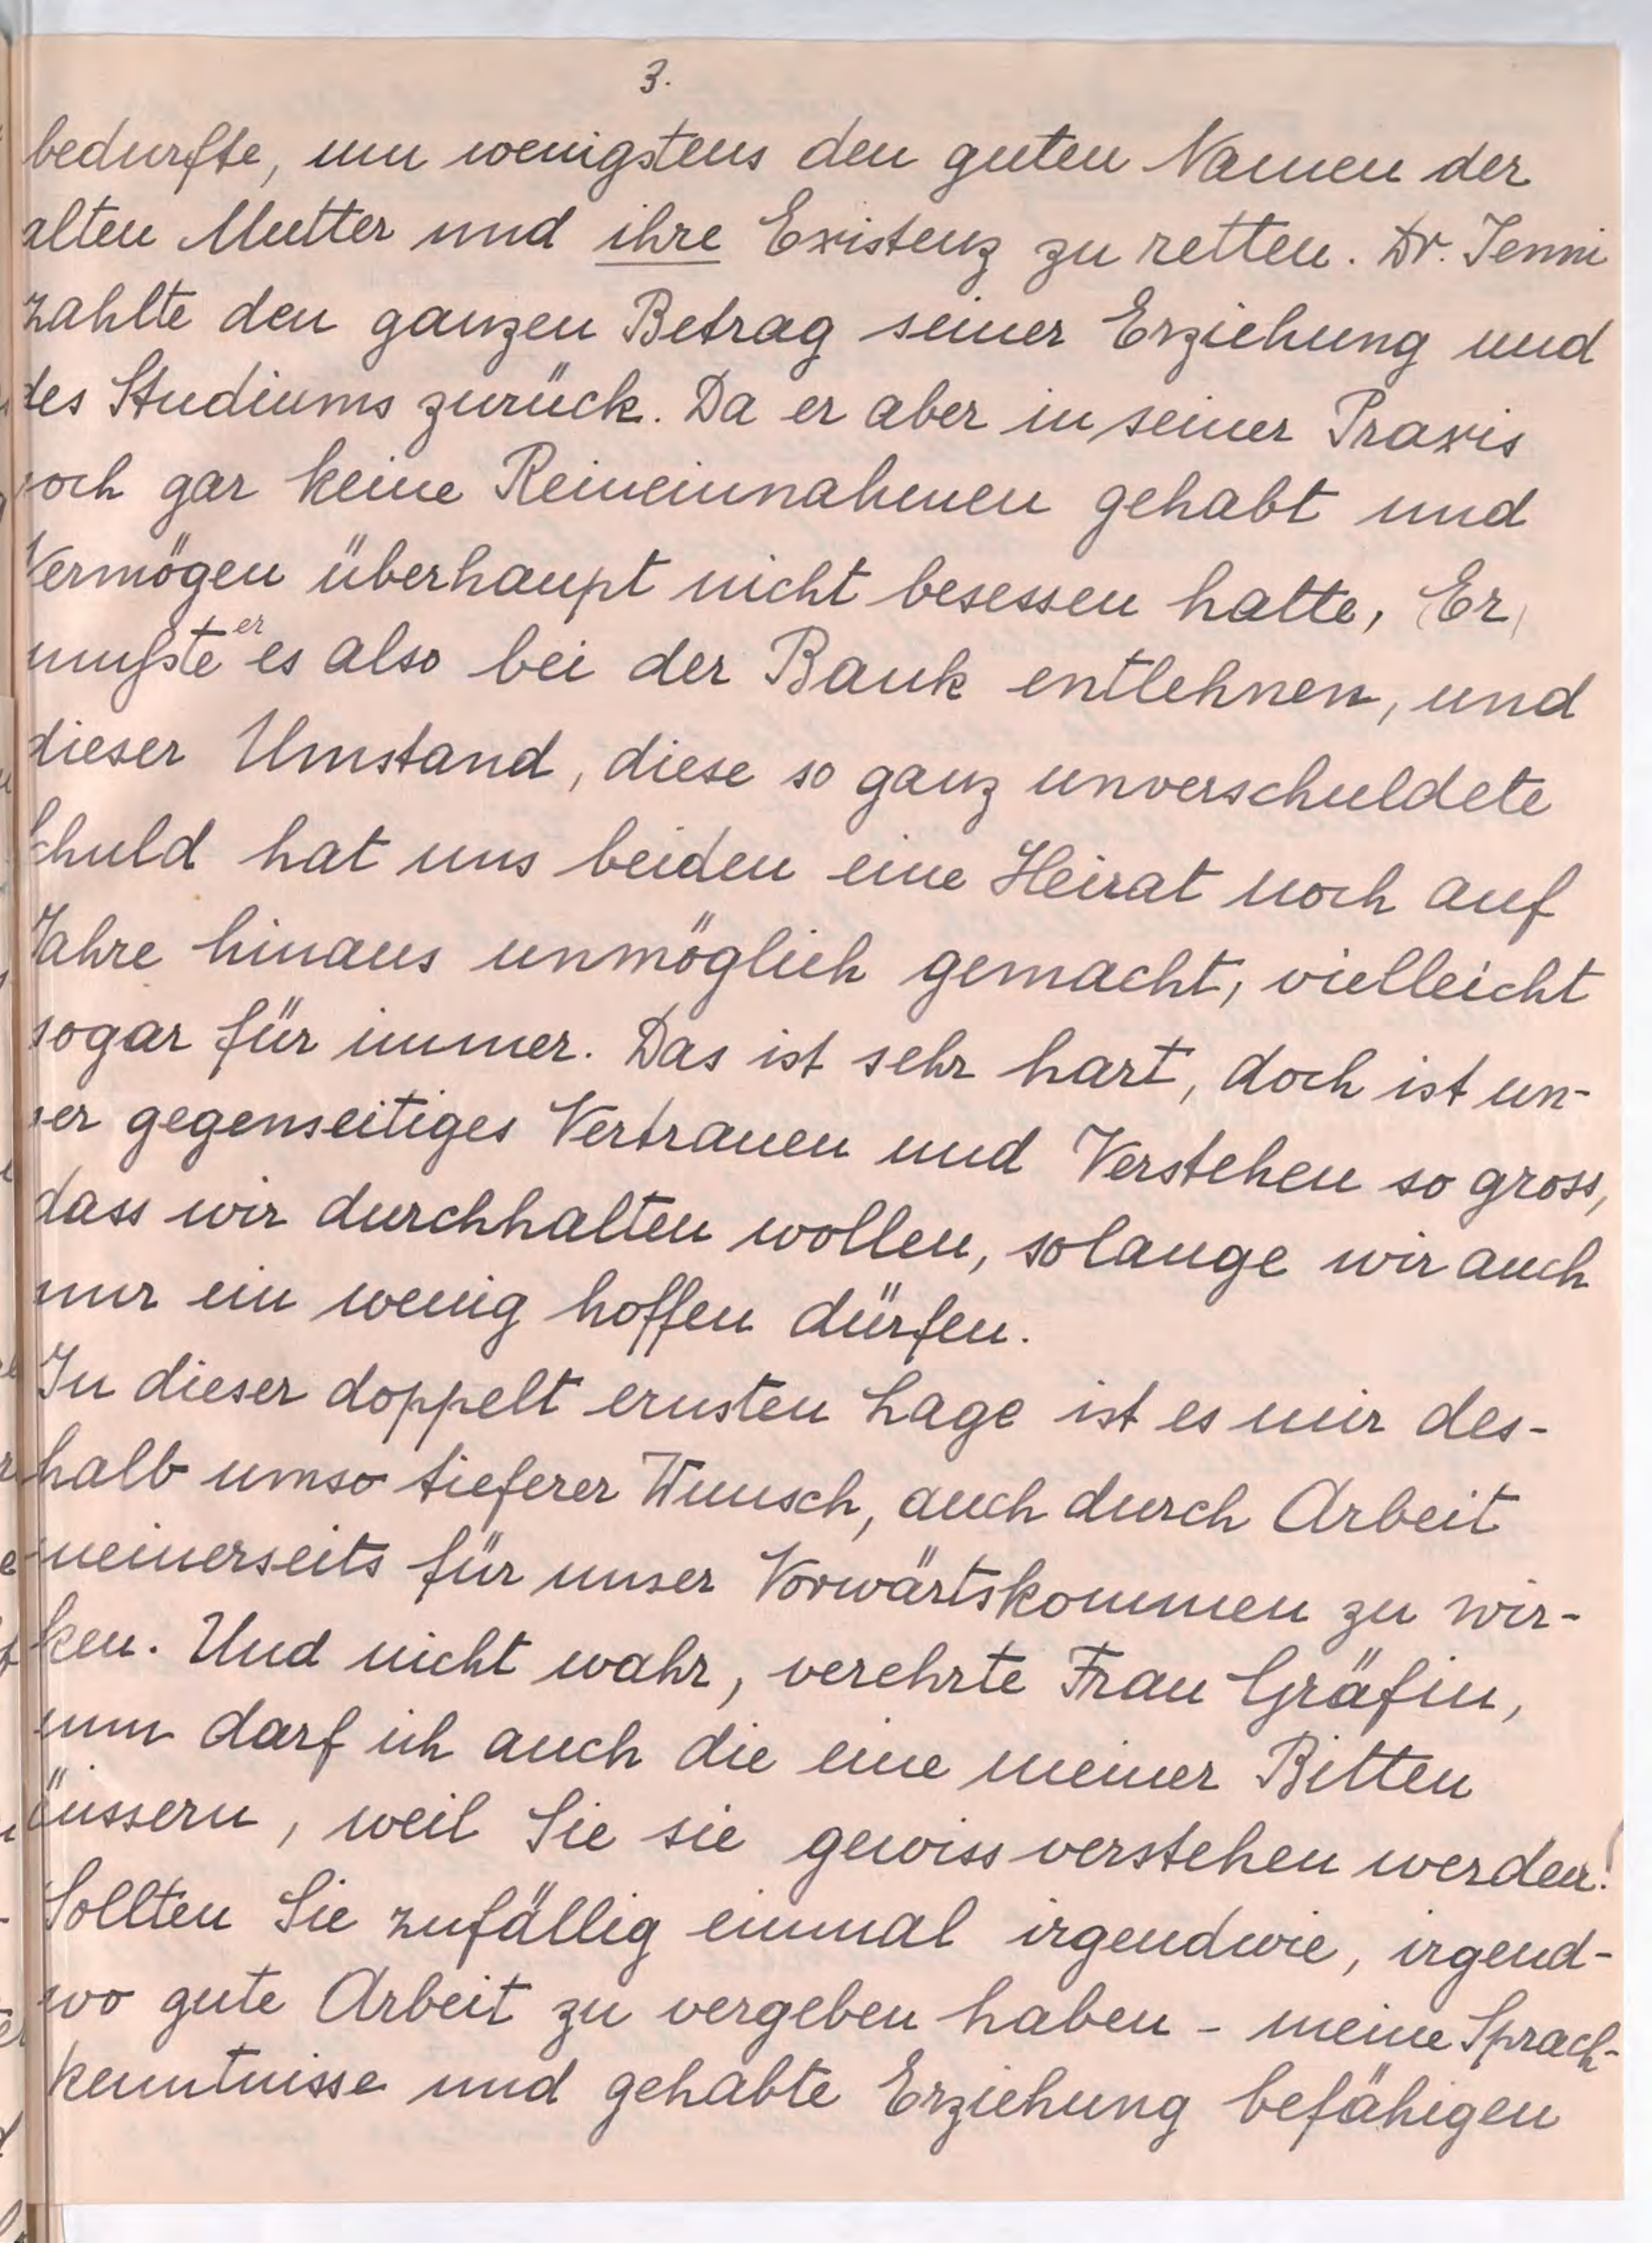 3.
bedurfte, um wenigstens den guten Namen der
alten Mutter und ihre Existenz zu retten. Dr. Jenni
zahlte den ganzen Betrag seiner Erziehung und
des Studiums zurück. Da er aber in seiner Praxis
noch gar keine Reineinnahmen gehabt und
Vermögen überhaupt nicht besessen hatte, (Er)
mußte er es also bei der Bank entlehnen, und
dieser Umstand, diese so ganz unverschuldete
Schuld hat uns beiden eine Heirat noch auf
Jahre hinaus unmöglich gemacht, vielleicht
sogar für immer. Das ist sehr hart, doch ist un-
ser gegenseitiges Vertrauen und Verstehen so gross,
dass wir durchhalten wollen, solange wir auch
nur ein wenig hoffen dürfen.
In dieser doppelt ernsten Lage ist es mir des-
halb umso tieferer Wunsch, auch durch Arbeit
meinerseits für unser Vorwärtskommen zu wir-
ken. Und nicht wahr, verehrte Frau Gräfin,
nun darf ich auch die eine meiner Bitten
äussern, weil Sie sie gewiss verstehen werden!
Sollten Sie zufällig einmal irgendwie, irgend-
wo gute Arbeit zu vergeben haben - meine Sprach-
kenntnisse und gehabte Erziehung befähigen